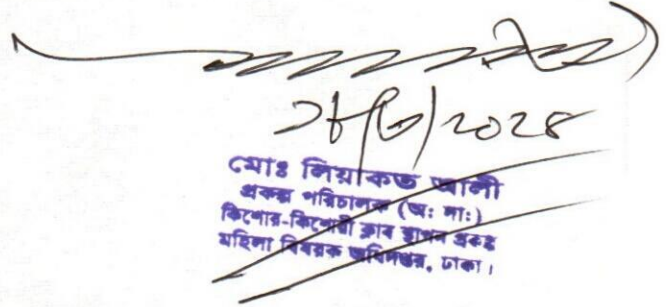 ২৮/৩/২০২৪
মোঃ লিয়াকত আলী
প্রকল্প পরিচালক (অঃ দাঃ)
কিশোর-কিশোরী ক্লাব স্থাপন প্রকল্প
মহিলা বিষয়ক অধিদপ্তর, ঢাকা।